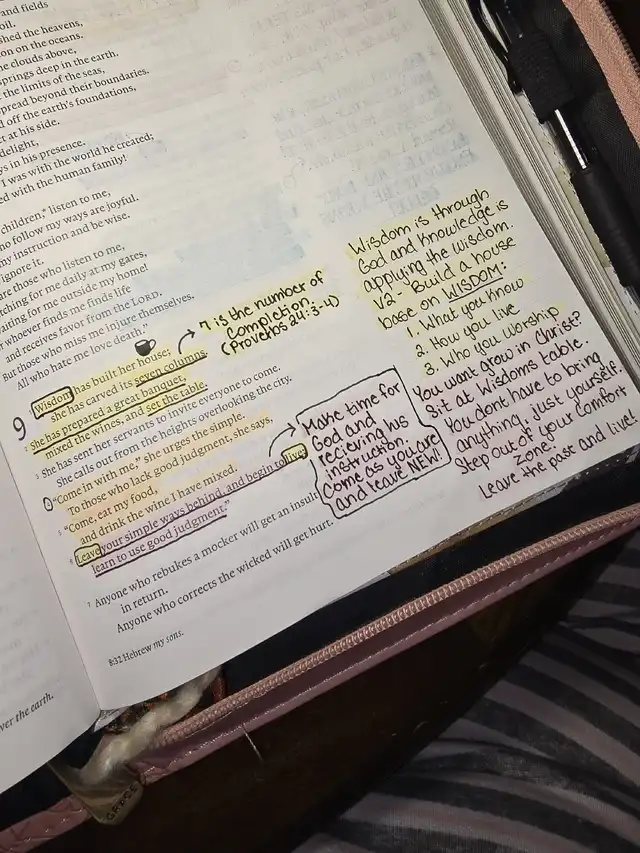 and fields
soil.
shed the heavens,
on on the oceans.
he clouds above,
springs deep in the earth.
the limits of the seas,
spread beyond their boundaries.
d off the earth's foundations,
t at his side.
delight,
ys in his presence.
I was with the world he created;
ed with the human family!
children, listen to me,
ho follow my ways are joyful.
my instruction and be wise.
ignore it.
are those who listen to me,
tching for me daily at my gates,
aiting for me outside my home!
whoever finds me finds life
and receives favor from the LORD.
But those who miss me injure themselves.
All who hate me love death."
9 Wisdom has built her house;
she has carved its seven columns.
2 She has prepared a great banquet,
mixed the wines, and set the table.
3 She has sent her servants to invite everyone to come.
She calls out from the heights overlooking the city.
4 "Come in with me," she urges the simple.
To those who lack good judgment, she says,
5 "Come, eat my food,
and drink the wine I have mixed.
6 Leave your simple ways behind, and begin to live;
learn to use good judgment."
7 Anyone who rebukes a mocker will get an insult
in return.
Anyone who corrects the wicked will get hurt.
8:32 Hebrew my sons.
over the earth.
7 is the number of
completion.
(Proverbs 24:3-4)
Make time for
God and
recieving his
instruction.
Come as you are
and leave NEW!
Wisdom is through
God and Knowledge is
applying the wisdom.
V2- Build a house
base on WISDOM:
1. What you Know
2. How you live
3. Who you worship
You want grow in Christ?
Sit at Wisdoms table.
You dont have to bring
anything, just yourself.
Step out of your comfort
zone.
Leave the past and live!